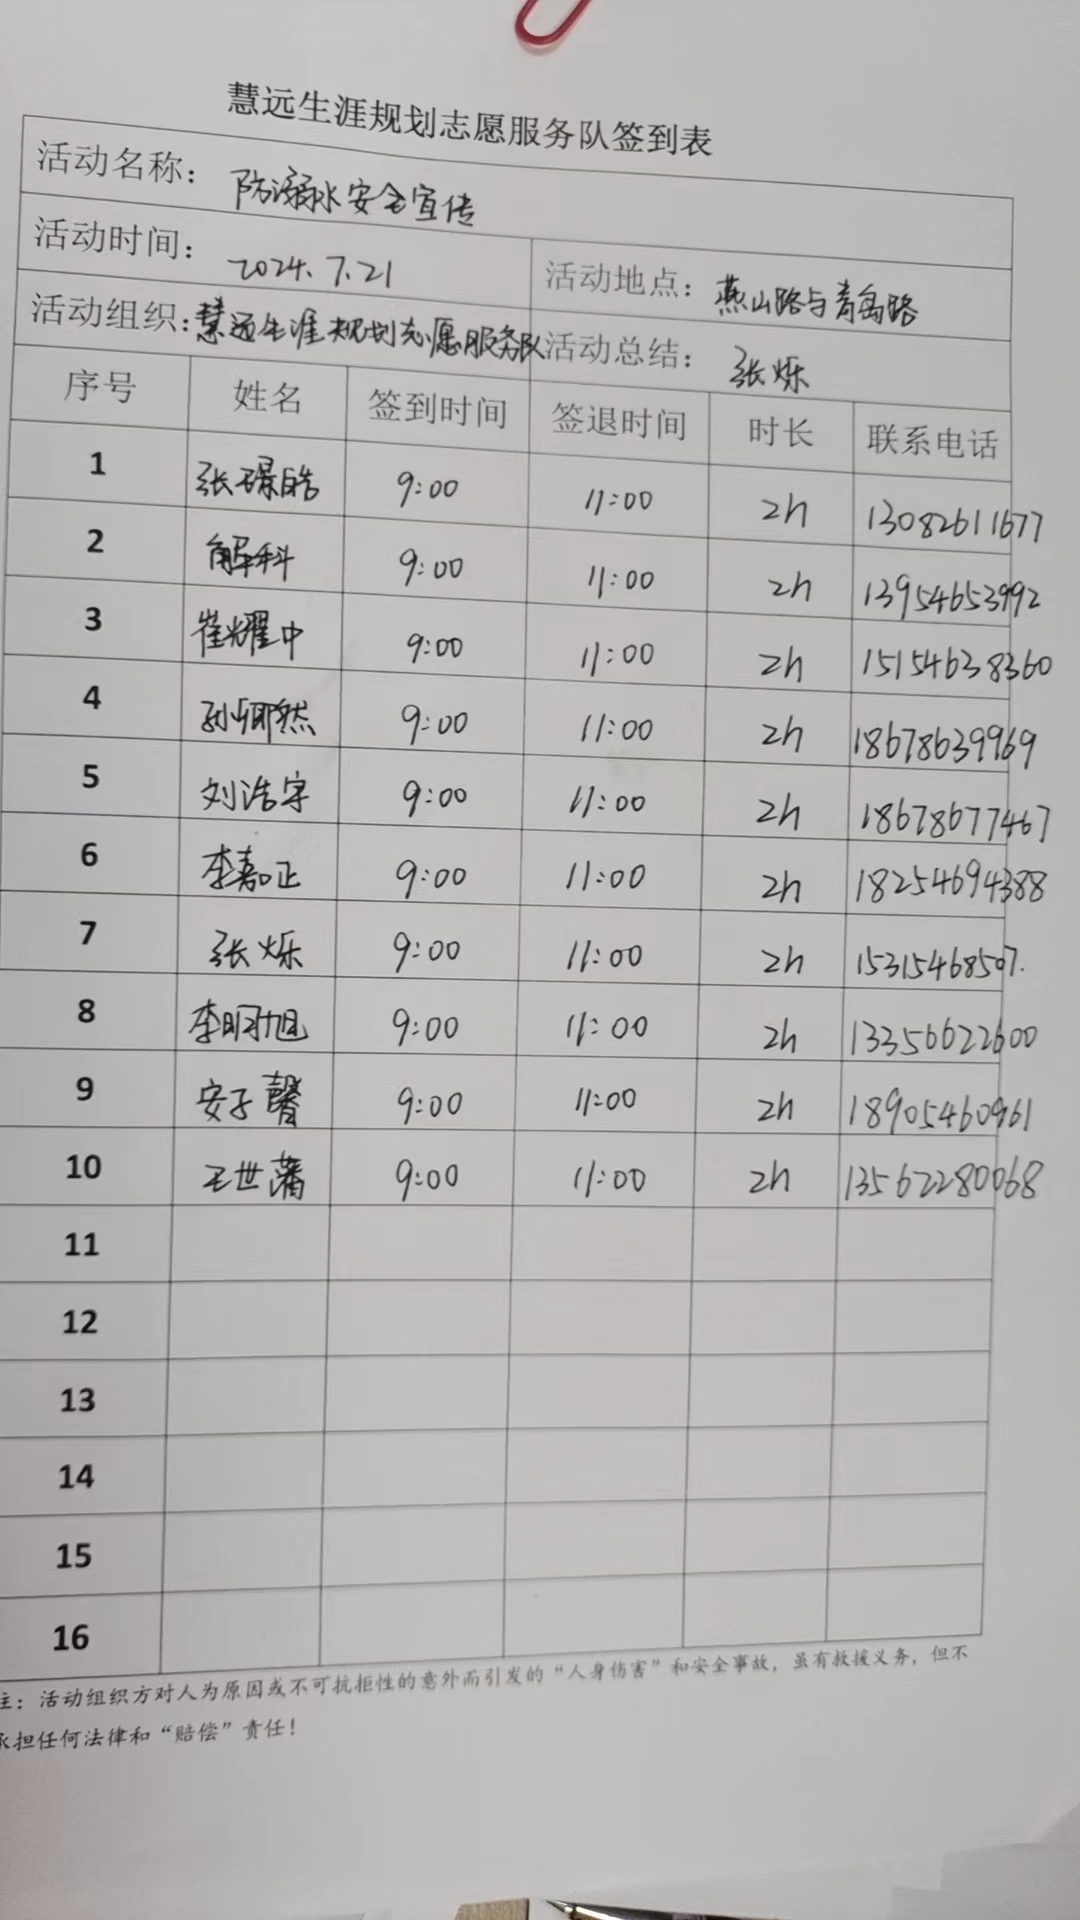 慧远生涯规划志愿服务队签到表
活动名称： 防溺水安全宣传
活动时间： 2024.7.21 活动地点： 燕山路与青岛路
活动组织： 慧远生涯规划志愿服务队 活动总结： 张烁
序号 姓名 签到时间 签退时间 时长 联系电话
1 张璟皓 9:00 11:00 2h 13082611677
2 解科 9:00 11:00 2h 13954653992
3 崔耀中 9:00 11:00 2h 15154638360
4 孙卿然 9:00 11:00 2h 18678639969
5 刘浩宇 9:00 11:00 2h 18678677467
6 李嘉正 9:00 11:00 2h 18254694388
7 张烁 9:00 11:00 2h 15315468507.
8 李明旭 9:00 11:00 2h 13356622600
9 安子馨 9:00 11:00 2h 18905460961
10 王世藩 9:00 11:00 2h 13562280068
11
12
13
14
15
16
注：活动组织方对人为原因或不可抗拒性的意外而引发的“人身伤害”和安全事故，虽有救援义务，但不
承担任何法律和“赔偿”责任！